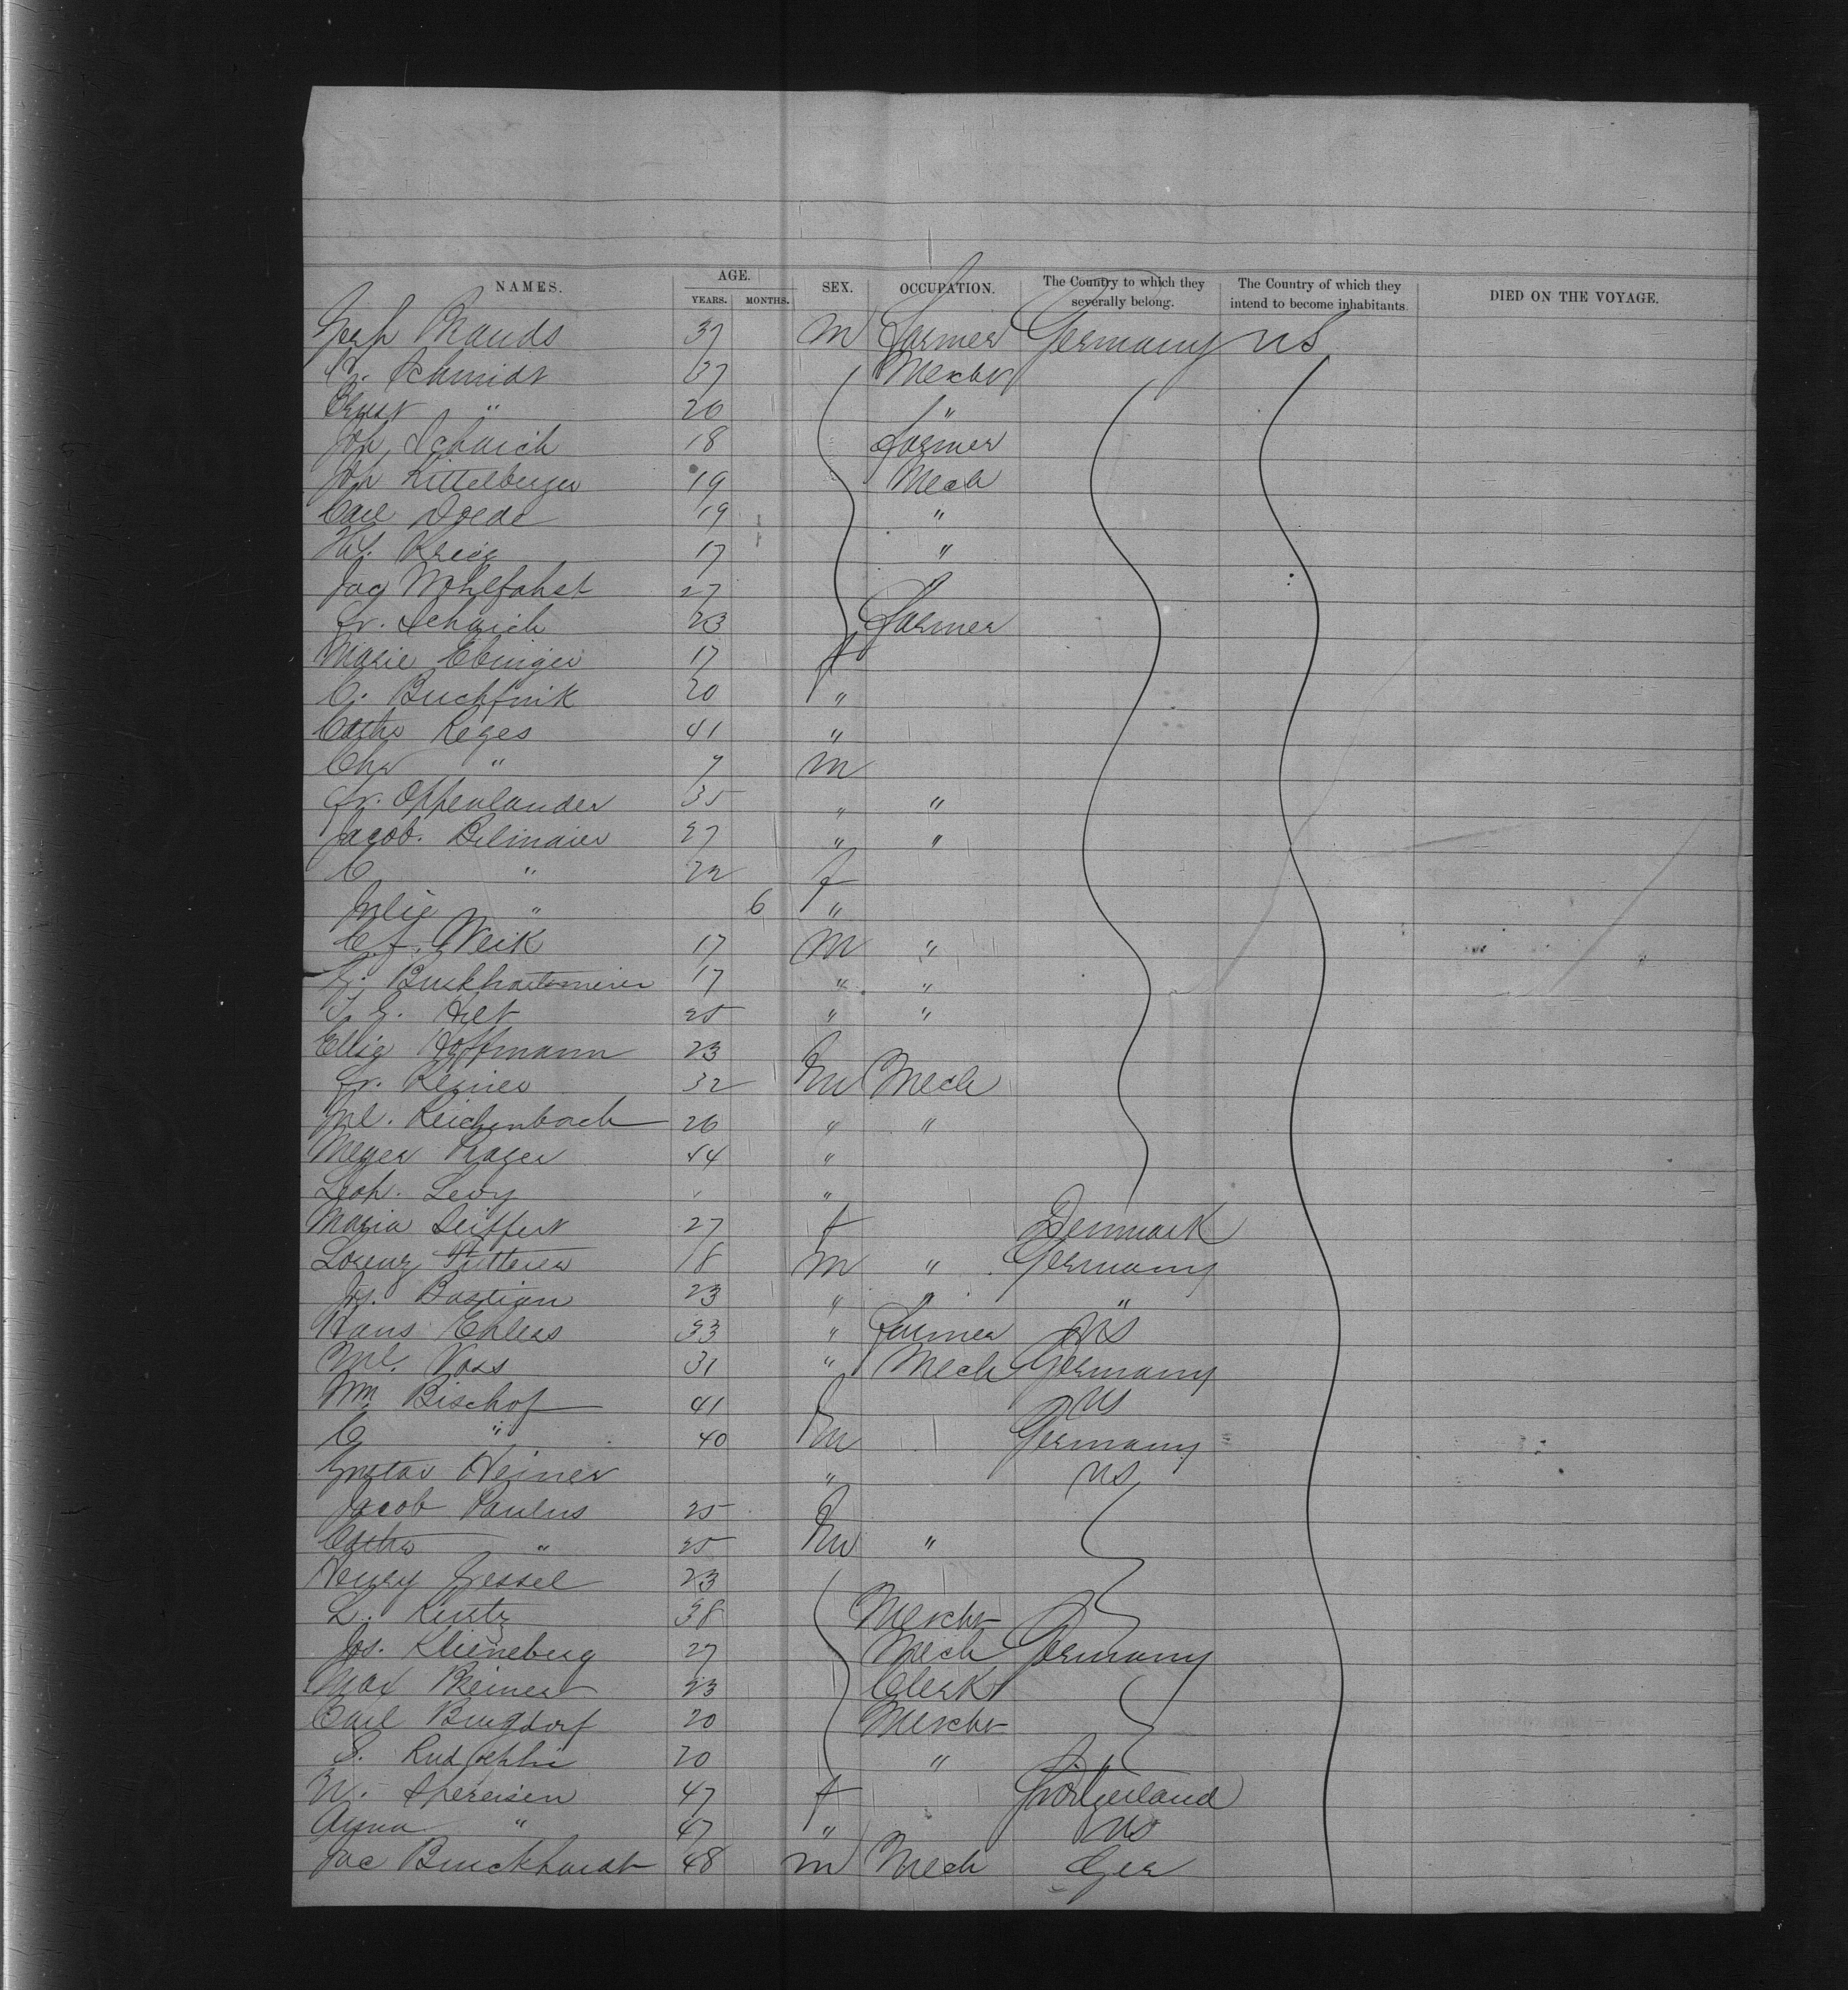 NAMES. AGE. YEARS. MONTHS. SEX. OCCUPATION. The Country to which they severally belong. The Country of which they intend to become inhabitants. DIED ON THE VOYAGE.
Gerh Brands 37 m Farmer Germany US
G. Schmidt 37 Mercht
Ernst " 20 "
Joh Schaich 18 Farmer
Joh Kittelberger 19 Mech
Carl Doede 19 "
17 "
Jac Wohlfahrt 27 "
Fr. Schaich 23 Farmer
Marie Ebinger 17 f
C. Buchfink 20 "
Cath Reges 41 "
Chr " 7 m
Fr. Oppenlander 35 " "
Jacob. Belmaier 27 " "
C " 22 f
Julie " 6 "
C. F. Weik 17 m "
G. Burkhartsmeier 17 " "
25 " "
Hoffmann 23
Fr. Regner 32 m Mech
Ml. Reichenbach 26 " "
Meyer Prager 44 "
Leoh. Levy " "
Maria Seiffert 27 f Denmark
Lorenz 18 m " Germany
Js. Bastian 23 " " "
Hans Ehlers 33 " Farmer US
Ml. Voss 31 " Mech Germany
Wm Bischof 41 US
C " 40 m Germany
Gustav Heiner " US
Jacob Paulus 25
Cath " 25 m "
Henry Gessel 23
L. Kurtz 38 Mercht
Jos. Klieneberg 27 Mech Germany
Max Reiner 23 Clerk
Carl Burgdorf 20 Mercht
S. Rudolphi 20 "
W. Spereisen 47 f Switzerland
Anna " 47 " US
Jac Burckhardt 48 m Mech Ger